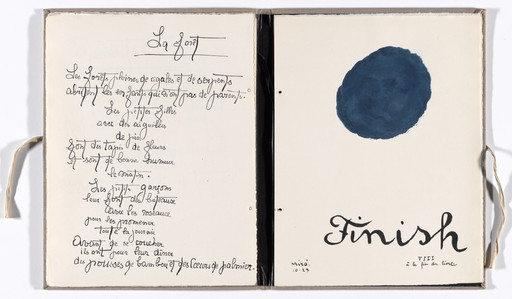 La forêt
Les forêts pleines de cigales et de serpents
abritent les enfants qui n'ont pas de parents.
Les petites filles
avec des aiguilles
de pin
font du tapis de fleurs
et sont de bonne humeur
le matin.
Les petits garçons
leur font des bateaux
avec les roseaux
pour les promener
toute la journée
Avant de se coucher
ils ont pour leur dîner
des pousses de bambou et des cœurs de palmier.
Finish
miró.
VIII
à la fin du livre